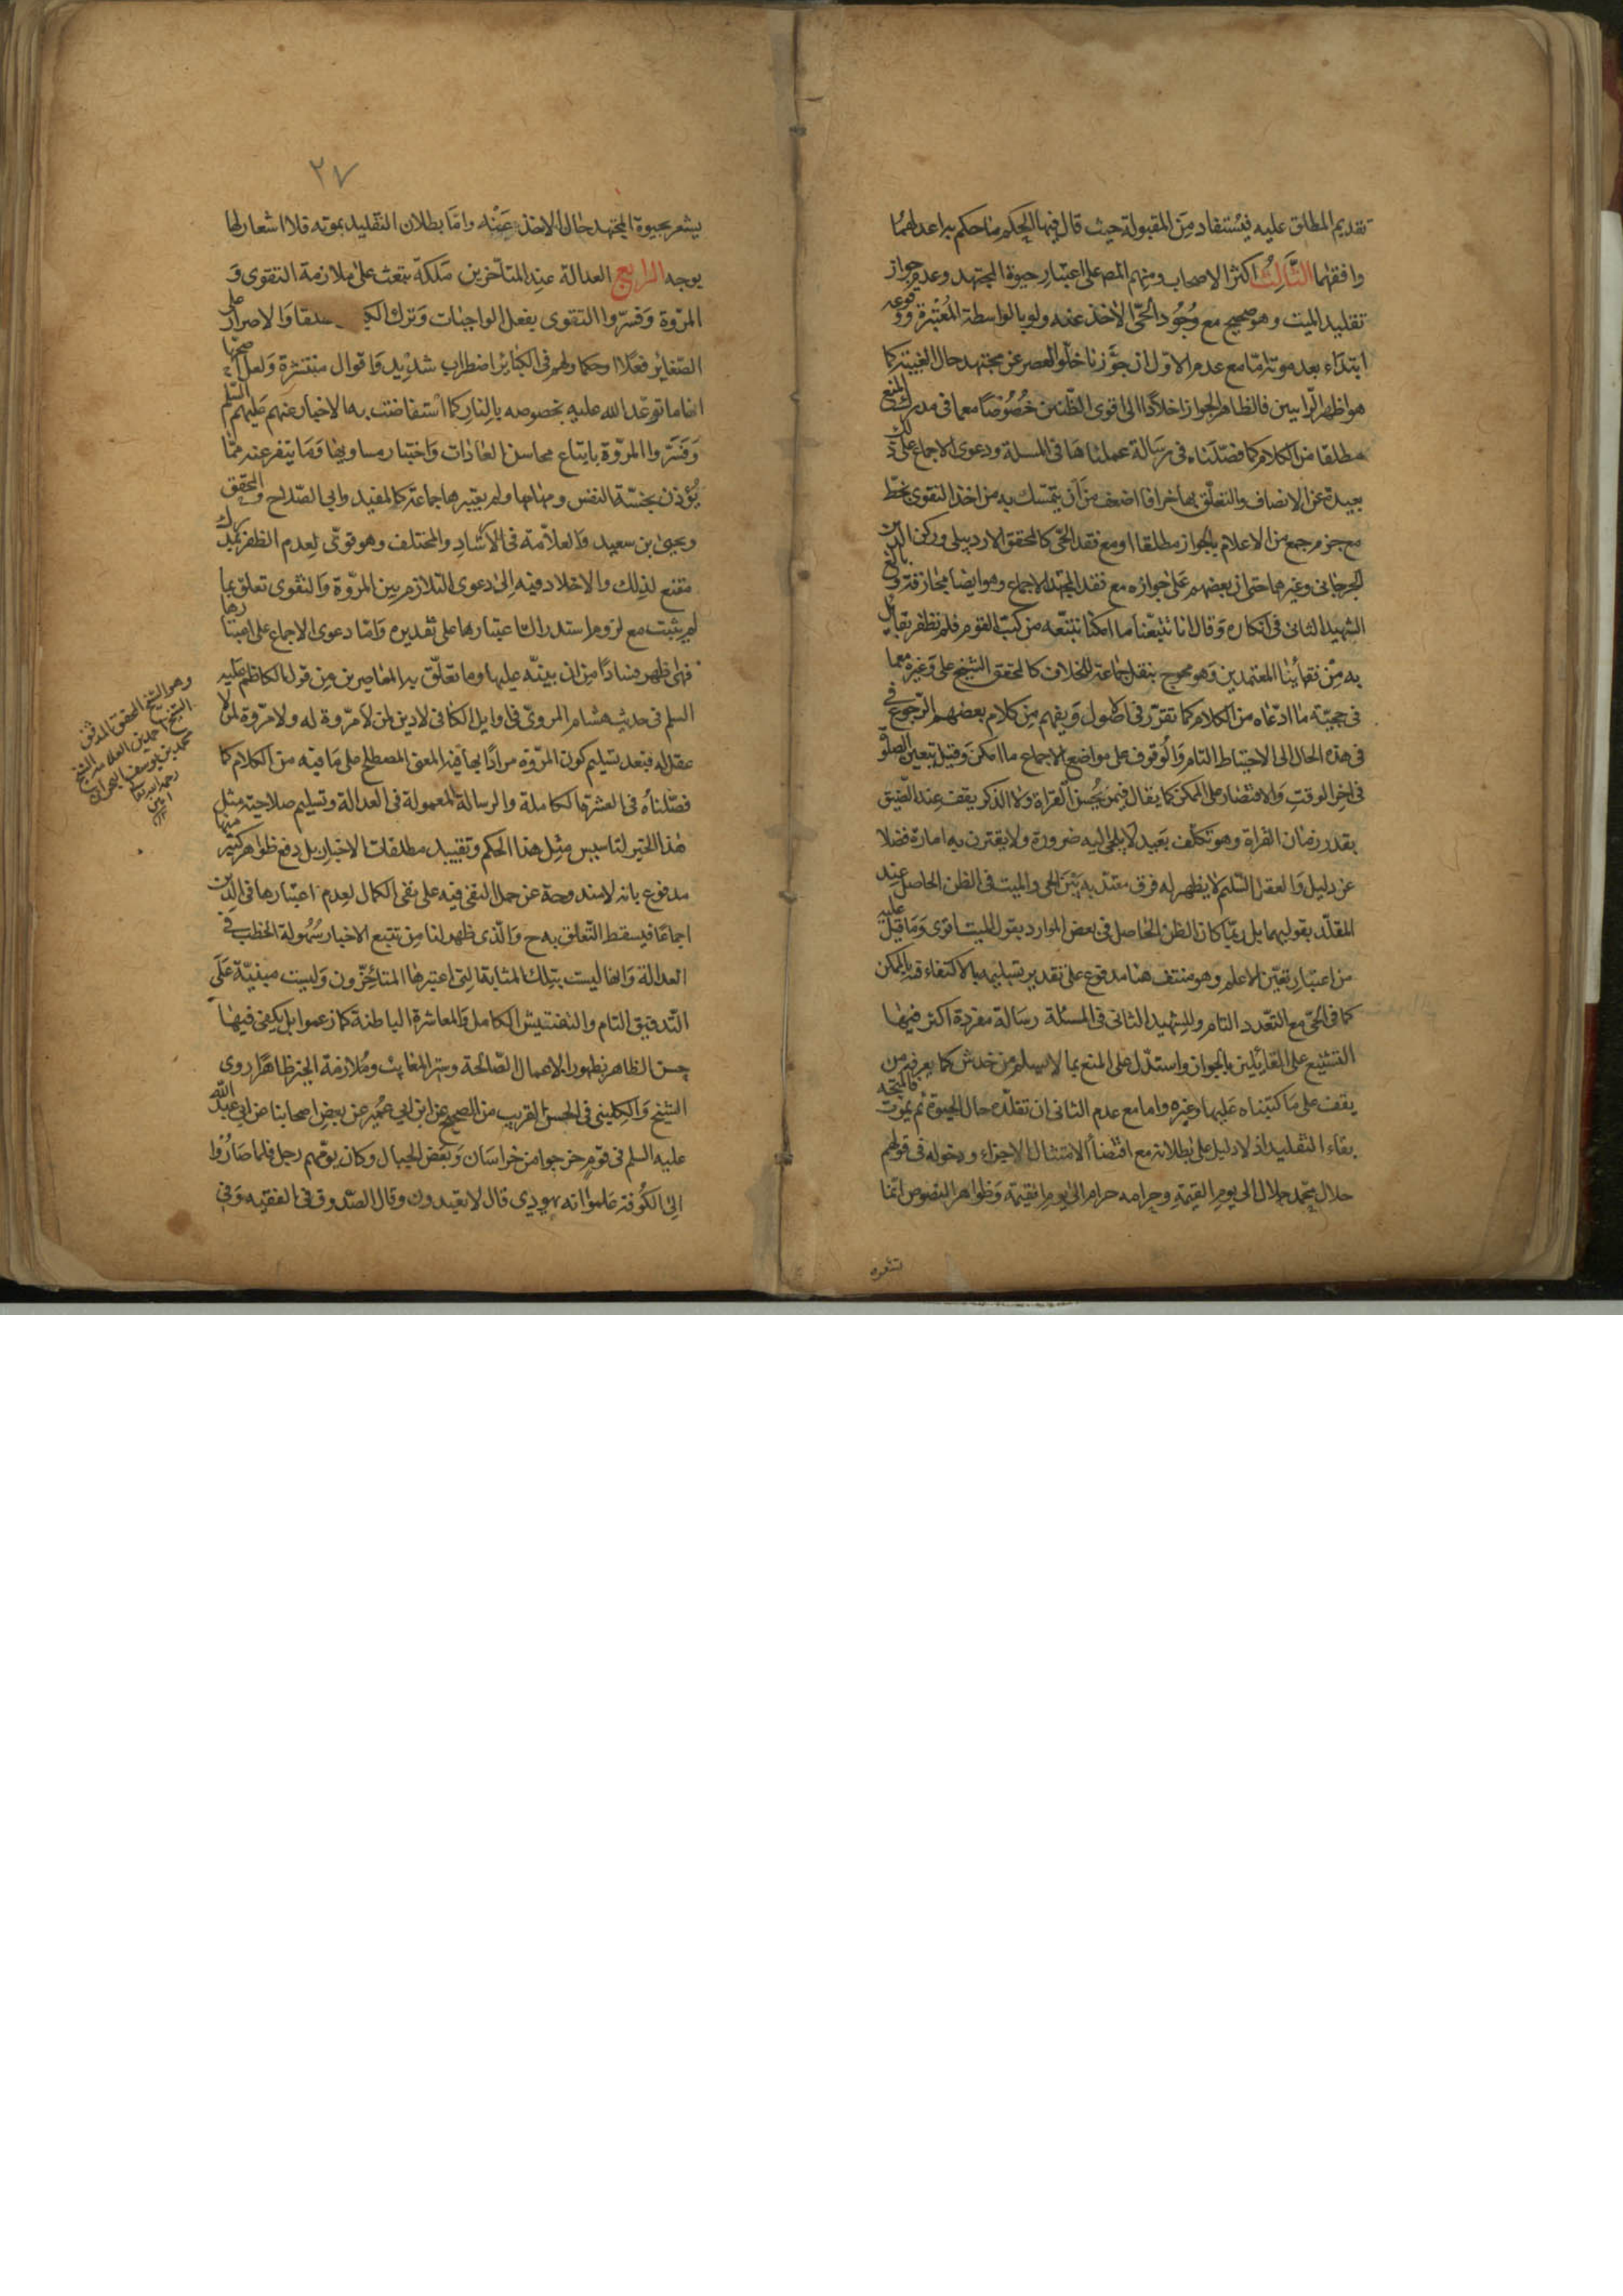 تقديم المطلق عليه فيستفاد من المقبولة حيث قال فيها الحكم ما حكم به اعدلهما
وافقهما الثالث اكثر الاصحاب ومنهم المصه على اعتبار حيوة المجتهد وعدم جواز
تقليد الميت وهو صحيح مع وجود الحى الاخذ عنه ولو بالواسطة المعتبرة ووقوعه
ابتداء بعد موته امّا مع عدم الاول ان جوّزنا خلو العصر عن مجتهد حال الغيبة كما
هو اظهر الرايين فالظاهر الجواز اخلادا الى اقوى الظنين خصوصا مع ما فى مدرك المنع
مطلقا من الكلام كما فصّلناه فى رسالة عملناها فى المسلة ودعوى الاجماع على ذلك
بعيدة عن الانصاف والتعلّق بها خرافا اضعف من ان يتمسك به من اخذ التقوى بخطّ
مع جزم جمع من الاعلام بالجواز مطلقا او مع فقد الحىّ كالمحقق الاردبيلى وركن الدين
الجرجانى وغيرهما حتى ان بعضهم على جوازه مع فقد المجتهد الاجماع وهو ايضا مجازفة وبالغ
الشهيد الثانى فى انكاره وقال انا تتبعنا ما امكننا تتبّعه من كتب القوم فلم نظفر بقايل
به من فقهائنا المعتمدين وهو محجوج بنقل جماعة للخلاف كالمحقق الشيخ على وغيره مع ما
فى حجيّة ما ادّعاه من الكلام كما تقرّر فى الاصول ويفهم من كلام بعضهم الرجوع فى
فى هذه الحال الى الاحتياط التام والوقوف على مواضع الاجماع ما امكن وقيل بتعين الصلوة
فى اخر الوقت والاقتصار على الممكن كما يقال فيمن يحسن القراة ولا الذكر يقف عند الضيق
بقدر زمان القراة وهو تكلف بعيد لا يلجئ اليه ضرورة ولا يقترن به امارة فضلا
عن دليل والعقل السليم لا يظهر له فرق معتدّ به بين الحى والميت فى الظن الحاصل عند
المقلّد بقوليهما بل ربّما كان الظن الحاصل فى بعض الموارد بقول الميت اقوى وما قيل عليه
من اعتبار تعيّن الاعلم وهو منتف هنا مدفوع على تقدير تسليمه بالاكتفاء فيه بالممكن
كما فى الحىّ مع التعّدد التام وللشهيد الثانى فى المسئلة رسالة مفردة اكثر فيها
التشنيع على القائلين بالجواز واستدل على المنع بما لا يسلم من خدش كما يعرفه من
يقف على ما كتبناه عليها وغيره واما مع عدم الثانى ان تقلّده حال الحيوة ثم يموت فالمتّجه
بقاء التقليد اذ لا دليل على بطلانه مع اقتضاء الامتثال الاجزاء ودخوله فى قولهم
حلال محمد حلال الى يوم القيمة وحرامه حرام الى يوم القيمة وظواهر النصوص انّما
تشعر
٢٧
يشعر بحيوة المجتهد حال الاخذ عنه وامّا بطلان التقليد بموته فلا اشعار لها
بوجه الرابع العدالة عند المتأخرين ملكة تبعث على ملازمة التقوى و
المروّة وفسّروا التقوى بفعل الواجبات وترك الكباير مطلقا والاصرار على
الصّغاير فعلا او حكما ولهم فى الكبائر اضطراب شديد واقوال منتشرة ولعل اصحّها
انها ما توعّد الله عليه بخصوصه بالنار كما استفاضت به الاخبار عنهم عليهم السّلم
وفسّروا المروّة باتباع محاسن العادات واجتناب مساويها وما يتفر عنه ممّا
يؤذن بخسّة النفس ومهانتها ولم يعتبرها جماعة كالمفيد وابى الصّلاح والمحقق
ويحيى بن سعيد والعلاّمة فى الارشاد والمختلف وهو قوىّ لعدم الظفر بمدرك
مقنع لذلك والاخلاد فيه الى دعوى التلازم بين المروّة والتقوى تعلق بما
لم يثبت مع لزوم استدراك اعتبارها على تقديره وامّا دعوى الاجماع على اعتبارها
فهى اظهر فسادا من ان ينبّه عليها وما تعلّق به المعاصرين من قول الكاظم عليه
السلم فى حديث هشام المروىّ فى اوايل الكافى لا دين لمن لا مروّة له ولا مروّة لمن لا
عقل له فبعد تسليم كون المروّة مرادا بها فيه المعنى المصطلح على ما فيه من الكلام كما
فصّلناه فى العشرة الكاملة والرسالة المعمولة فى العدالة وتسليم صلاحية مثل
هذا الخبر لتاسيس مثل هذا الحكم وتقييد مطلقات الاخبار بل دفع ظواهر كثير منها
مدفوع بانه لا مندوحة عن حمل النفى فيه على نفى الكمال لعدم اعتبارها فى الدين
اجماعا فيسقط التّعلق به ح والّذى ظهر لنا من تتبع الاخبار سهولة الخطب فى
العدالة وانها ليست بتلك المثابة التى اعتبرها المتأخّرون وليست مبنيّة على
التّدقيق التام والتفتيش الكامل والمعاشرة الباطنة كما زعموا بل يكفى فيها
حسن الظاهر بظهور الاعمال الصّالحة وستر المعايب وملازمة الخير ظاهرا روى
الشيخ والكلينى فى الحسن القريب من الصحيح عن ابن ابى عمير عن بعض اصحابنا عن ابى عبد الله
عليه السلم فى قوم خرجوا من خراسان وبعض الجبال وكان يؤمّهم رجل فلما صاروا
الى الكوفة علموا انه يهودى قال لا يعيدون وقال الصّدوق فى الفقيه وفى
وهو الشيخ المحقق المدقق
الشيخ احمد بن العلامة الشيخ
محمد بن يوسف البحرانى
رحمه الله تعالى